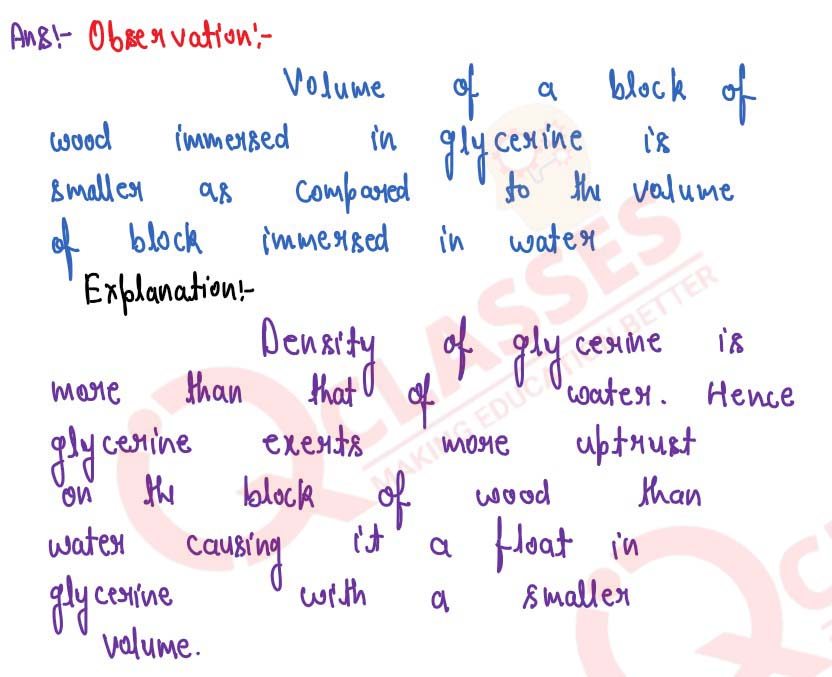 Ans:- Observation:-
Volume of a block of
wood immersed in glycerine is
smaller as compared to the volume
of block immersed in water
Explanation:-
Density of glycerine is
more than that of water. Hence
glycerine exerts more uptrust
on the block of wood than
water causing it a float in
glycerine with a smaller
volume.
IQ CLASSES
MAKING EDUCATION BETTER